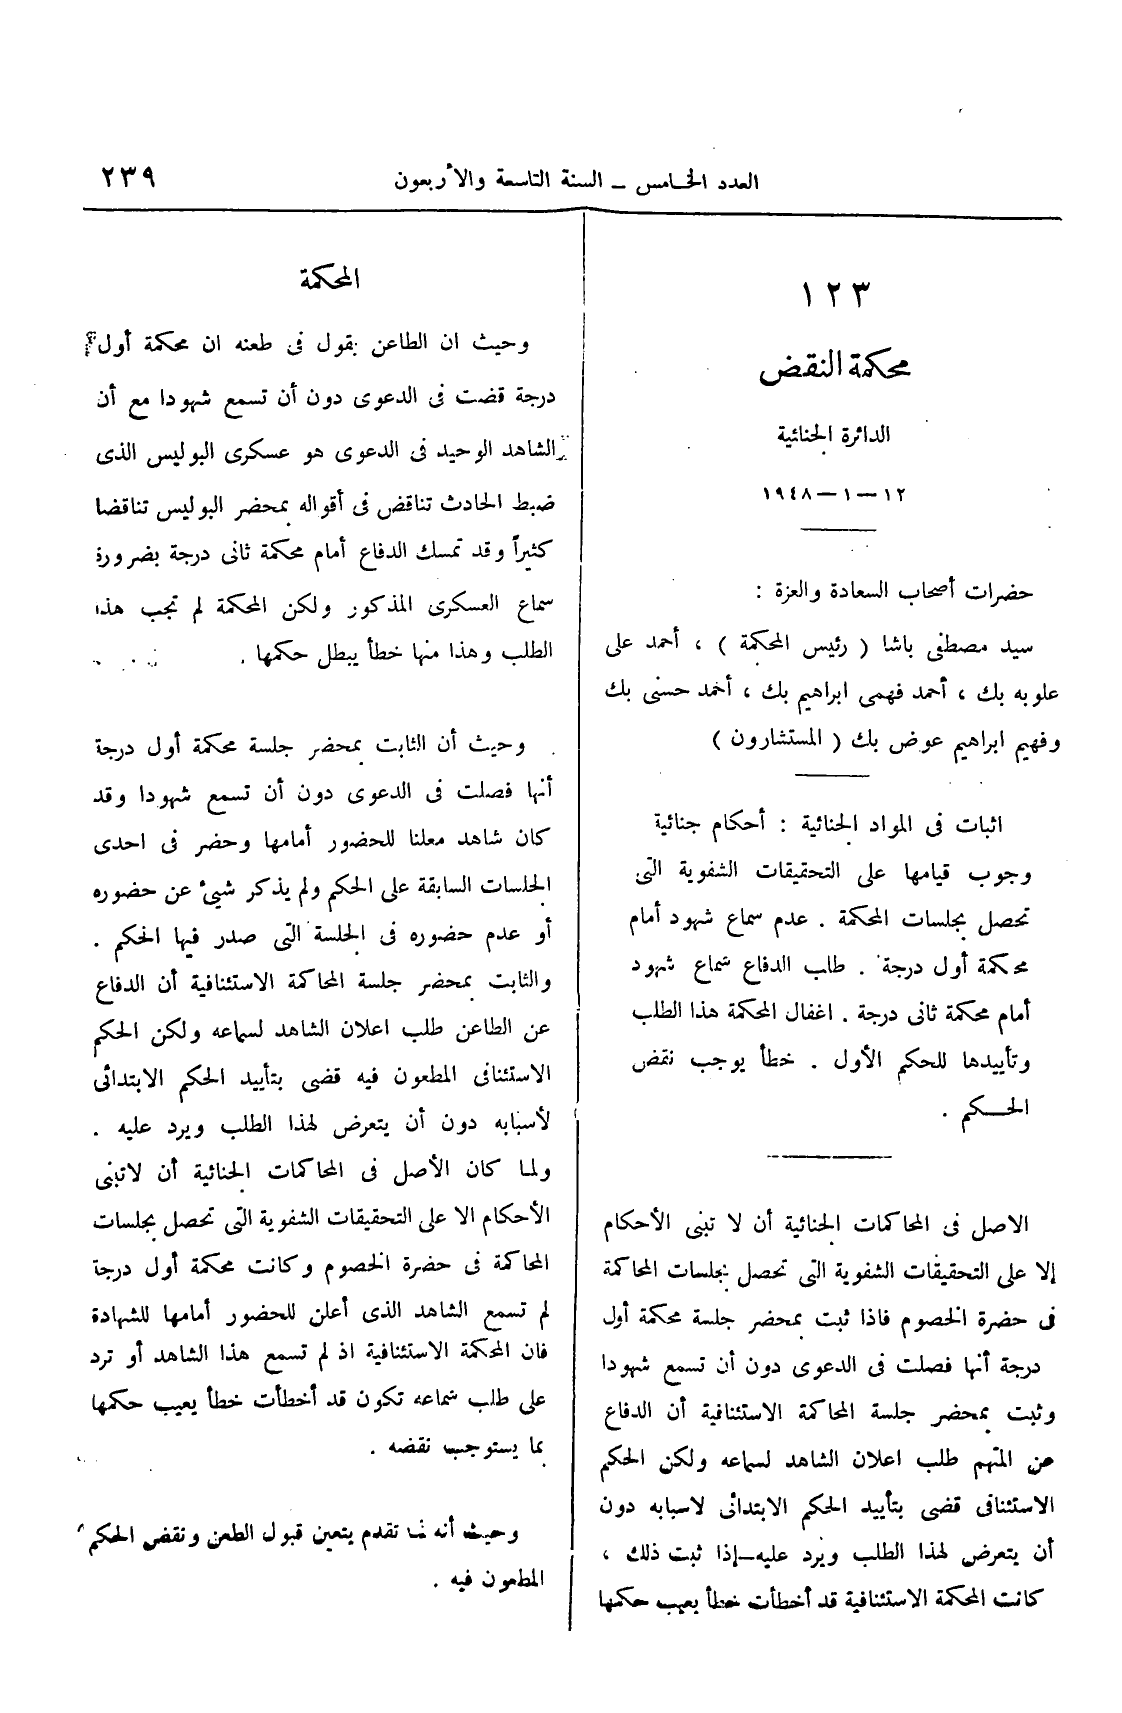 العدد الخامس – السنة التاسعة والأربعون
٢٣٩
١٢٣
محكمة النقض
الدائرة الجنائية
١٢ – ١ – ١٩٤٨
حضرات أصحاب السعادة والعزة :
سيد مصطفى باشا ( رئيس المحكمة ) ، أحمد على
علوبه بك ، أحمد فهمى ابراهيم بك ، أحمد حسنى بك
وفهيم ابراهيم عوض بك ( المستشارون )
اثبات فى المواد الجنائية : أحكام جنائية
وجوب قيامها على التحقيقات الشفوية التى
تحصل بجلسات المحكمة . عدم سماع شهود أمام
محكمة أول درجة . طلب الدفاع سماع شهود
أمام محكمة ثانى درجة . اغفال المحكمة هذا الطلب
وتأييدها للحكم الأول . خطأ يوجب نقض
الحكم .
الاصل فى المحاكمات الجنائية أن لا تبنى الأحكام
إلا على التحقيقات الشفوية التى تحصل بجلسات المحاكمة
فى حضرة الخصوم فاذا ثبت بمحضر جلسة محكمة أول
درجة أنها فصلت فى الدعوى دون أن تسمع شهودا
وثبت بمحضر جلسة المحاكمة الاستئنافية أن الدفاع
عن المتهم طلب اعلان الشاهد لسماعه ولكن الحكم
الاستئنافى قضى بتأييد الحكم الابتدائى لاسبابه دون
أن يتعرض لهذا الطلب ويرد عليه – إذا ثبت ذلك ،
كانت المحكمة الاستئنافية قد أخطأت خطأ يعيب حكمها
المحكمة
وحيث ان الطاعن يقول فى طعنه ان محكمة أول
درجة قضت فى الدعوى دون أن تسمع شهودا مع أن
الشاهد الوحيد فى الدعوى هو عسكرى البوليس الذى
ضبط الحادث تناقض فى أقواله بمحضر البوليس تناقضا
كثيراً وقد تمسك الدفاع أمام محكمة ثانى درجة بضرورة
سماع العسكرى المذكور ولكن المحكمة لم تجب هذا
الطلب وهذا منها خطأ يبطل حكمها .
وحيث أن الثابت بمحضر جلسة محكمة أول درجة
أنها فصلت فى الدعوى دون أن تسمع شهودا وقد
كان شاهد معلنا للحضور أمامها وحضر فى احدى
الجلسات السابقة على الحكم ولم يذكر شيئ عن حضوره
أو عدم حضوره فى الجلسة التى صدر فيها الحكم .
والثابت بمحضر جلسة المحاكمة الاستئنافية أن الدفاع
عن الطاعن طلب اعلان الشاهد لسماعه ولكن الحكم
الاستئنافى المطعون فيه قضى بتأييد الحكم الابتدائى
لأسبابه دون أن يتعرض لهذا الطلب ويرد عليه .
ولما كان الأصل فى المحاكمات الجنائية أن لاتبنى
الأحكام الا على التحقيقات الشفوية التى تحصل بجلسات
المحاكمة فى حضرة الخصوم وكانت محكمة أول درجة
لم تسمع الشاهد الذى أعلن للحضور أمامها للشهادة
فان المحكمة الاستئنافية اذ لم تسمع هذا الشاهد أو ترد
على طلب سماعه تكون قد أخطأت خطأ يعيب حكمها
بما يستوجب نقضه .
وحيث أنه لما تقدم يتعين قبول الطعن ونقض الحكم
المطعون فيه .